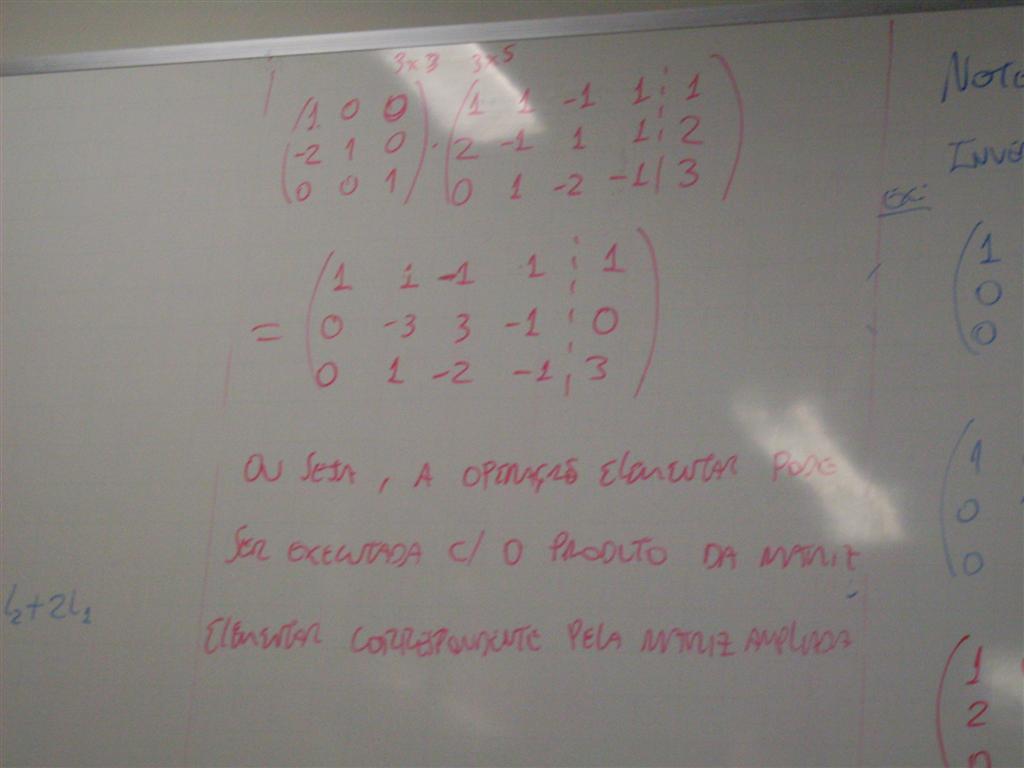 3x3 3x5
(1 0 0) . (1 1 -1 1 ¦ 1)
(-2 1 0) (2 -1 1 1 ¦ 2)
(0 0 1) (0 1 -2 -1 | 3)
= (1 1 -1 1 ¦ 1)
(0 -3 3 -1 ¦ 0)
(0 1 -2 -1 ¦ 3)
OU SEJA, A OPERAÇÃO ELEMENTAR PODE
SER EXECUTADA C/ O PRODUTO DA MATRIZ
ELEMENTAR CORRESPONDENTE PELA MATRIZ AMPLIADA
L2+2L1
ex:
(1
0
0
(1
0
0
(1
2